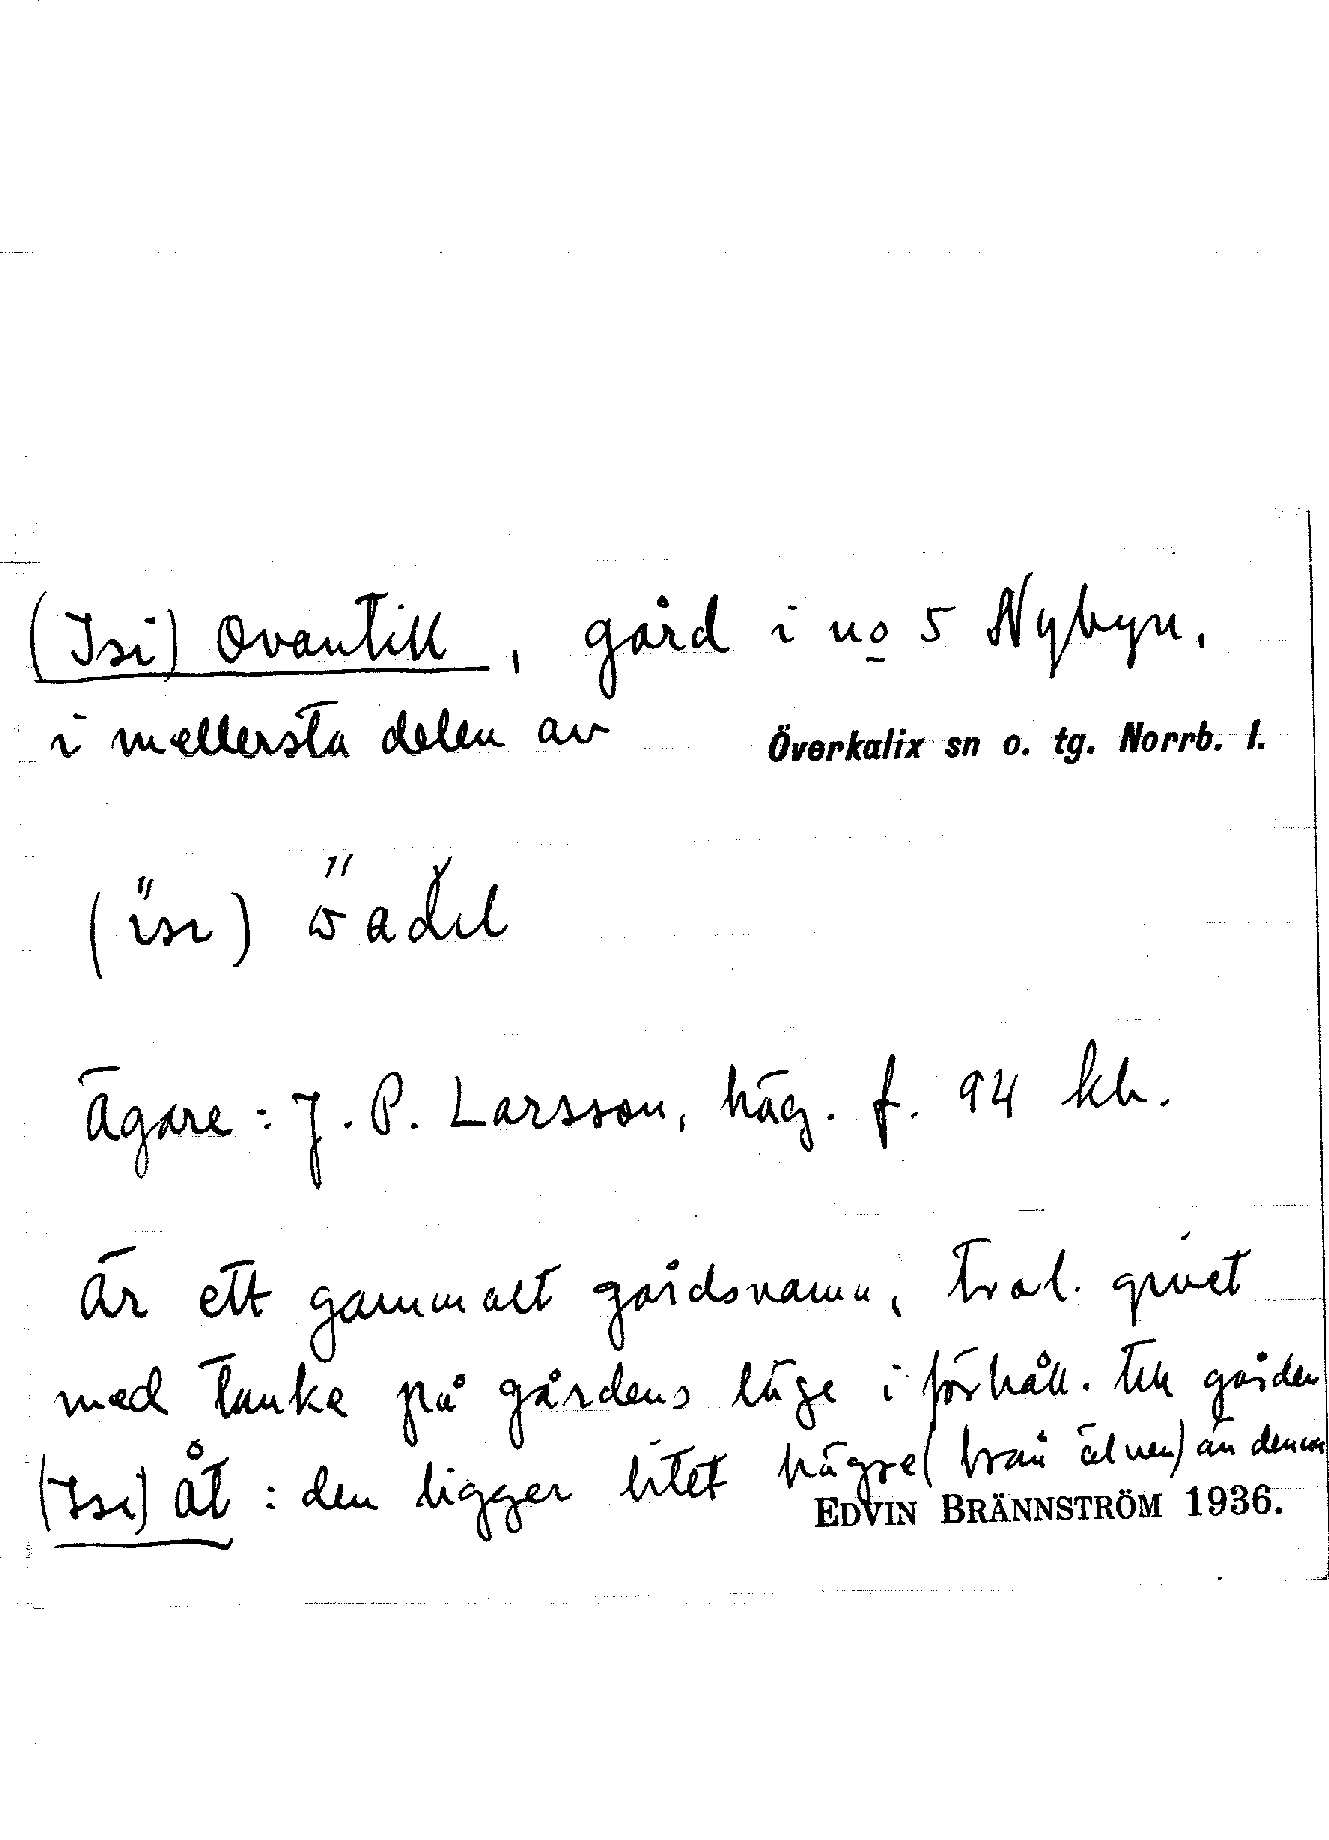 (Isi) Ovantill, gård i no 5 Nybyn,
i mellersta delen av Överkalix sn o. tg. Norrb. l.
Ägare: J. P. Larsson, häg. f. 94 kh.
Är ett gammalt gårdsnamn, trol. givet
med tanke på gårdens läge i förhåll. till gården
(Isi) åt: den ligger litet högre (från älven) än denna
EDVIN BRÄNNSTRÖM 1936.